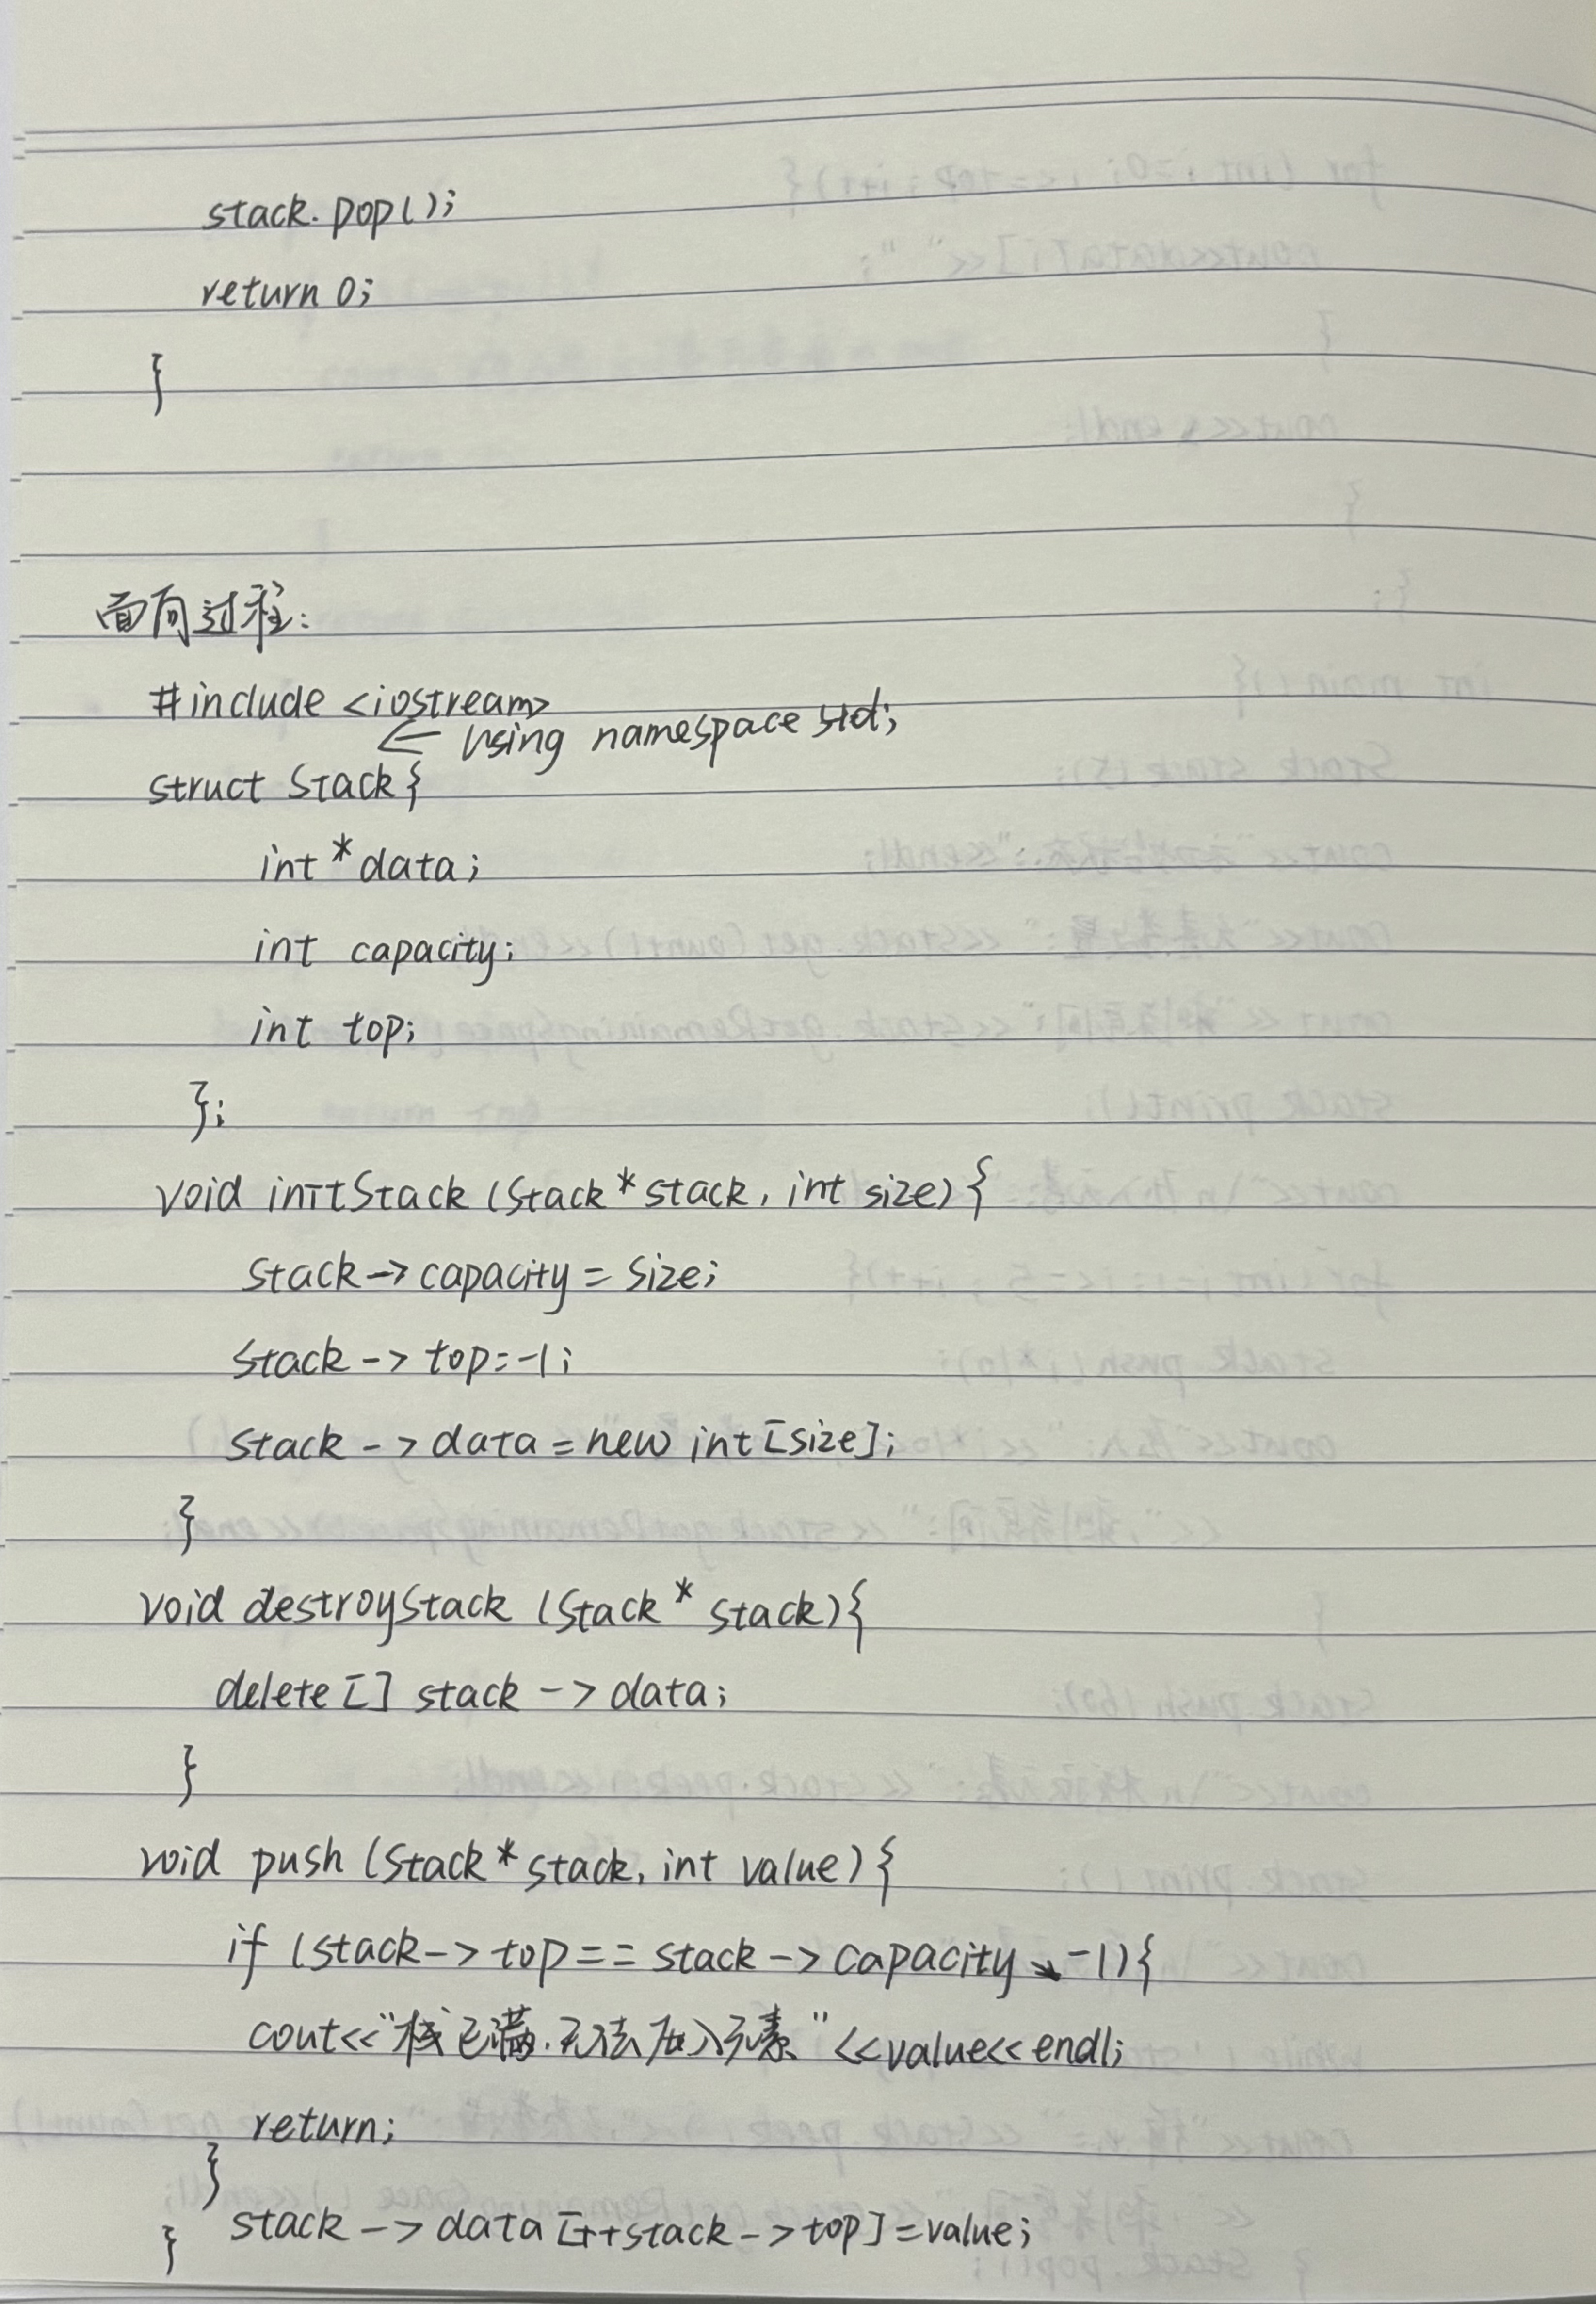 stack.pop();
return 0;
}
面向过程:
#include <iostream>
← using namespace std;
struct Stack{
int *data;
int capacity;
int top;
};
void initStack (Stack* stack, int size){
stack -> capacity = size;
stack -> top=-1;
stack -> data = new int [size];
}
void destroyStack (Stack* stack){
delete [] stack -> data;
}
void push (Stack* stack, int value){
if (stack -> top == stack -> capacity -1){
cout<<"栈已满.无法压入元素"<<value<<endl;
return;
}
stack -> data [++stack -> top] = value;
}